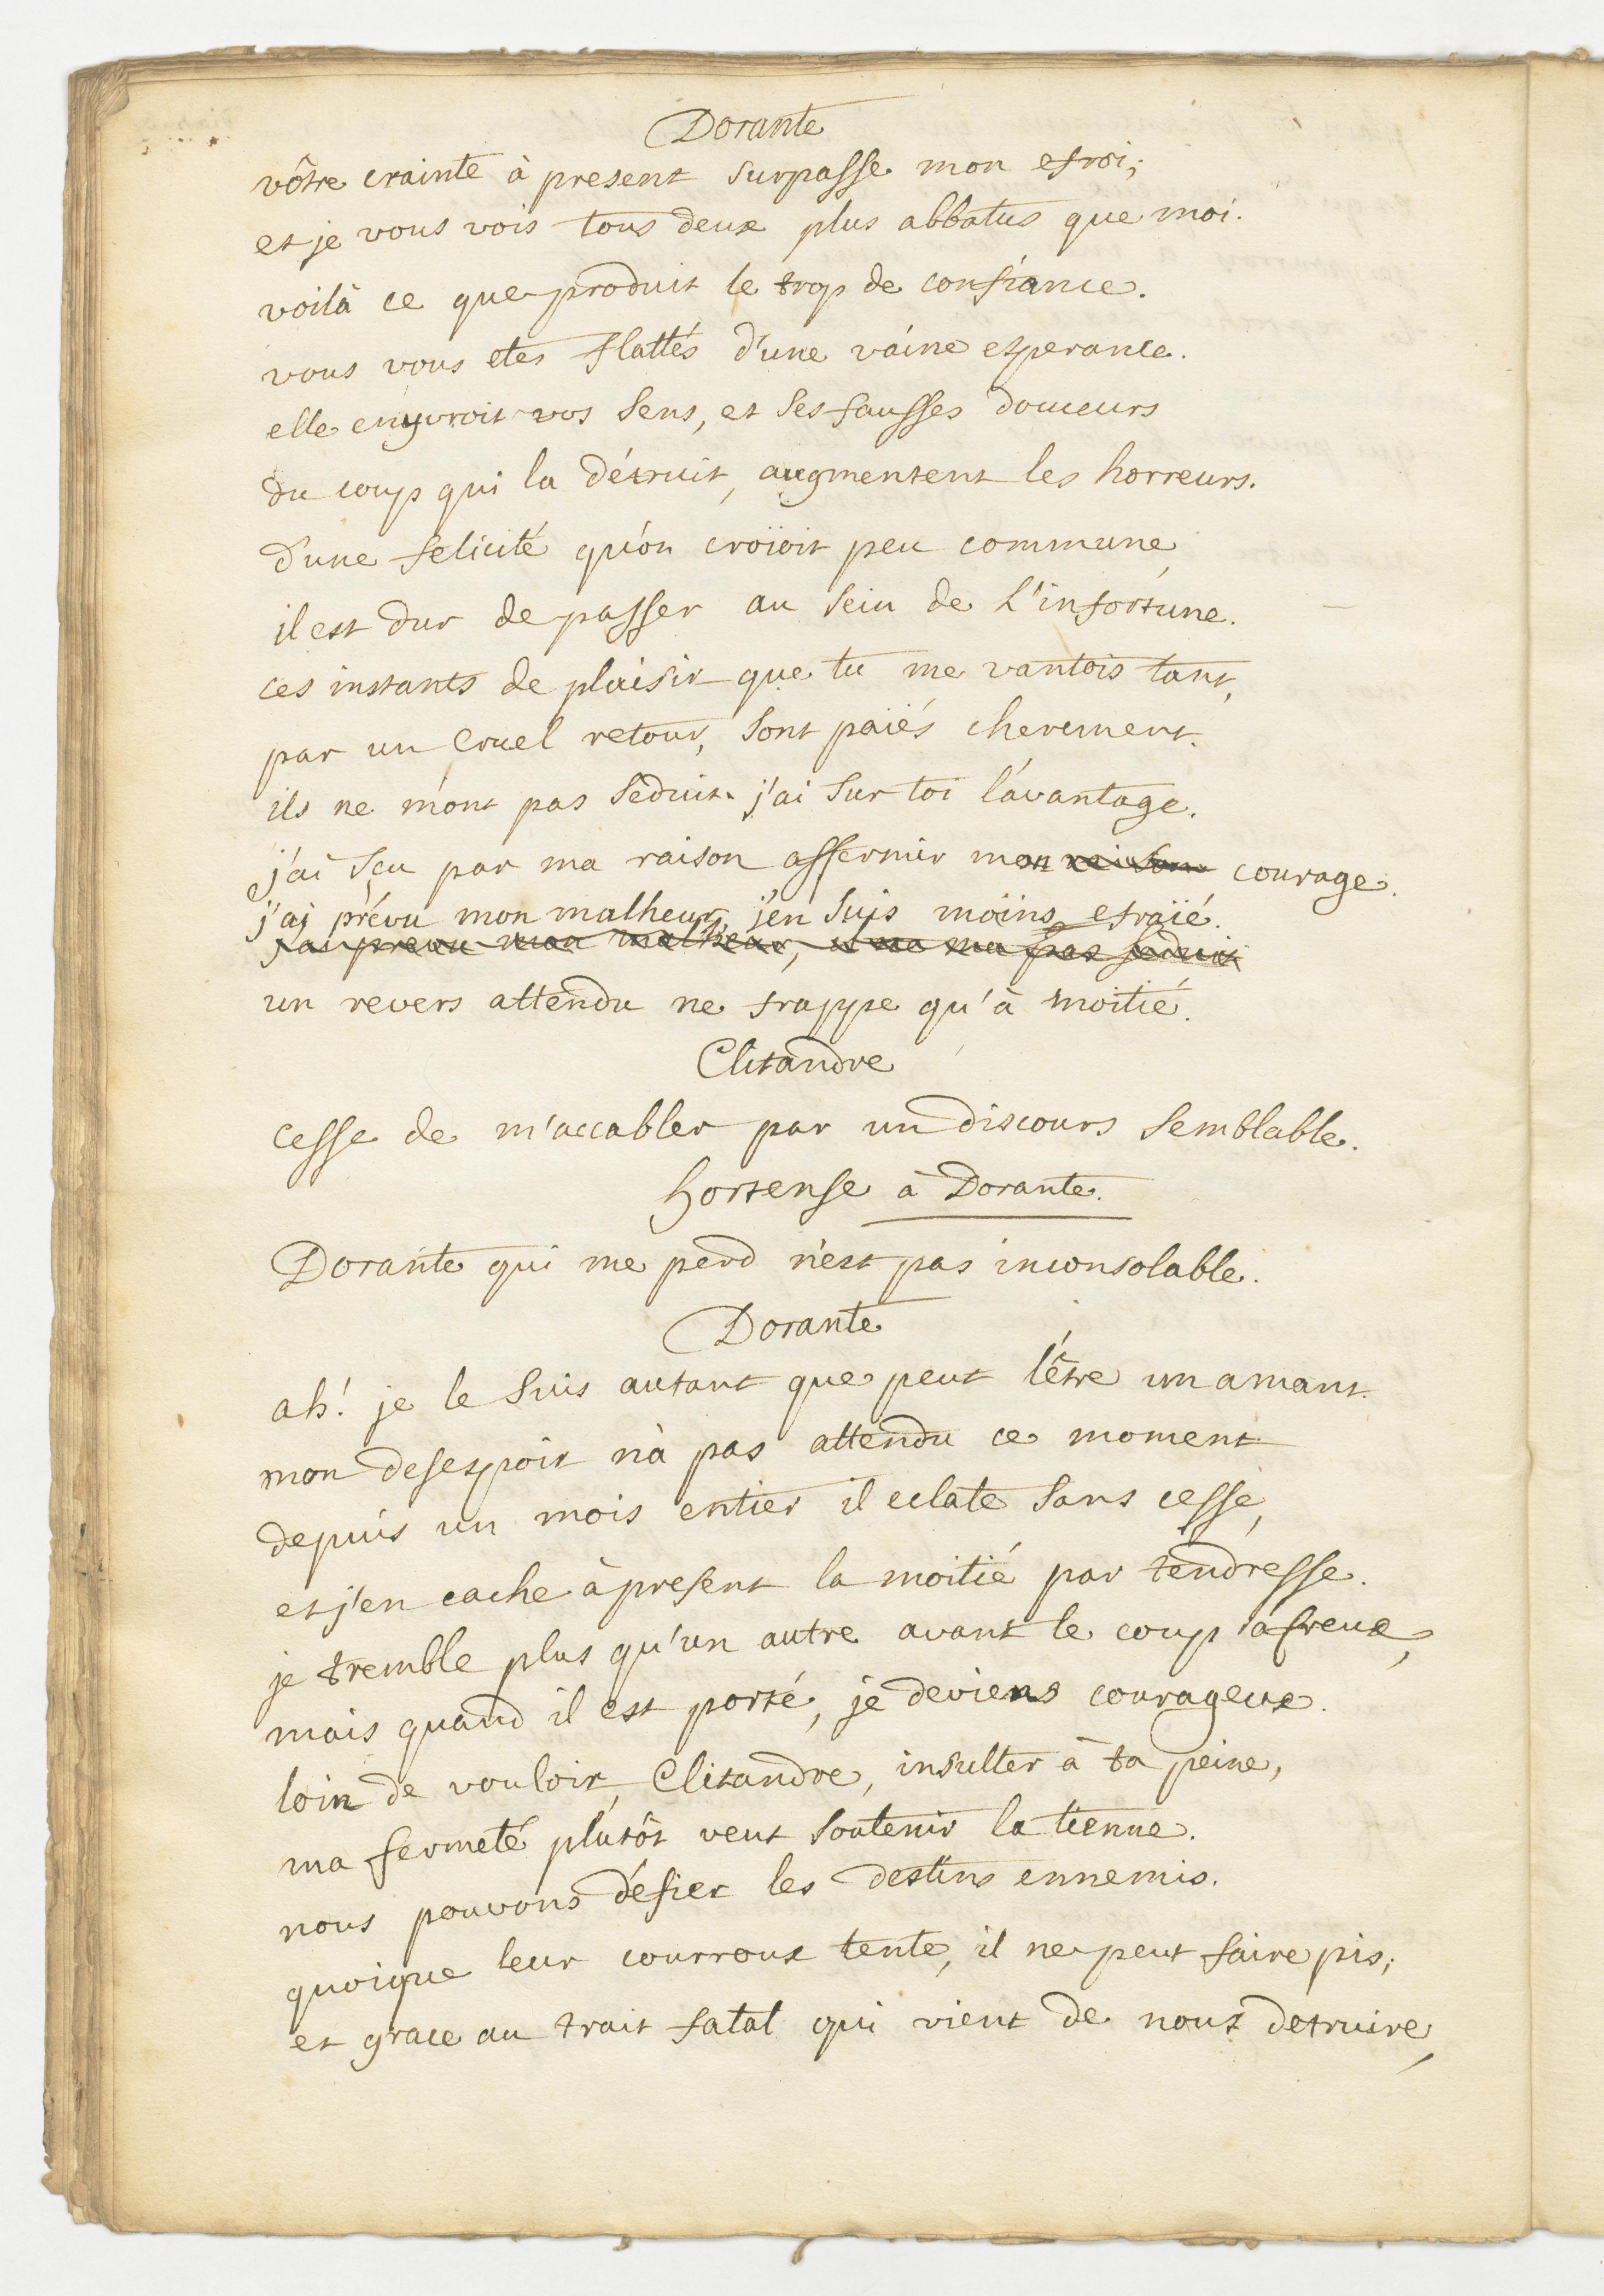 Dorante
vôtre crainte à present surpasse mon efroi;
et je vous vois tous deux plus abbatus que moi.
voilà ce que produit le trop de confiance.
vous vous etes flattés d'une vaine esperance.
elle enyvroit vos sens, et ses fausses douceurs
du coup qui la détruit, augmentent les horreurs.
d'une felicité qu'on croïoit peu commune,
il est dur de passer au sein de l'infortune.
ces instants de plaisir que tu me vantois tant,
par un cruel retour, sont païés cherement.
ils ne m'ont pas séduit. j'ai sur toi l'avantage.
j'ai sçu par ma raison affermir mon raison courage.
j'ai prévu mon malheur, j'en suis moins efraïé.
j'ai prevu mon malheur, il ne ma pas seduit
un revers attendu ne frappe qu'à moitié.
Clitandre
cesse de m'accabler par un discours semblable.
hortense à Dorante.
Dorante qui me perd n'est pas inconsolable.
Dorante
ah! je le suis autant que peut l'être un amant.
mon desespoir n'a pas attendu ce moment
depuis un mois entier il eclate sans cesse,
et j'en cache à present la moitié par tendresse.
je tremble plus qu'un autre avant le coup afreux,
mais quand il est porté, je deviens courageux.
loin de vouloir, Clitandre, insulter à ta peine,
ma fermeté plutôt veut soutenir la tienne.
nous pouvons défier les destins ennemis.
quoique leur courroux tente, il ne peut faire pis;
et grace au trait fatal qui vient de nous detruire,